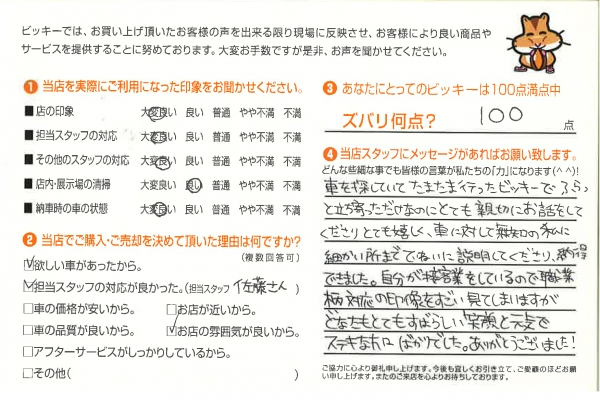 ビッキーでは、お買い上げ頂いたお客様の声を出来る限り現場に反映させ、お客様により良い商品や
サービスを提供することに努めております。大変お手数ですが是非、お声を聞かせてください。
❶ 当店を実際にご利用になった印象をお聞かせください。
■店の印象 大変良い 良い 普通 やや不満 不満
■担当スタッフの対応 大変良い 良い 普通 やや不満 不満
■その他のスタッフの対応 大変良い 良い 普通 やや不満 不満
■店内・展示場の清掃 大変良い 良い 普通 やや不満 不満
■納車時の車の状態 大変良い 良い 普通 やや不満 不満
❷ 当店でご購入・ご売却を決めて頂いた理由は何ですか?
(複数回答可)
☑欲しい車があったから。
☑担当スタッフの対応が良かった。(担当スタッフ 佐藤さん )
□車の価格が安いから。 □お店が近いから。
□車の品質が良いから。 ☑お店の雰囲気が良いから。
□アフターサービスがしっかりしているから。
□その他( )
❸ あなたにとってのビッキーは100点満点中
ズバリ何点? 100 点
❹ 当店スタッフにメッセージがあればお願い致します。
どんな些細な事でも皆様の言葉が私たちの「力」になります(^^)!
車を探していてたまたま行ったビッキーでふらっ
と立ち寄っただけなのにとても親切にお話をして
くださりとても嬉しく、車に対して無知の私に
細かい所までていねいに説明してくださり、納得
できました。自分が接客業をしているので職業
柄対応の印像をすごい見てしまいますが
どなたもとてもすばらしい笑顔と元気で
ステキな方ばかりでした。ありがとうございました!
ご協力に心より御礼申し上げます。今後も宜しくお引き立て、ご愛顧のほどお願
い申し上げます。またのご来店を心よりお待ちしております。